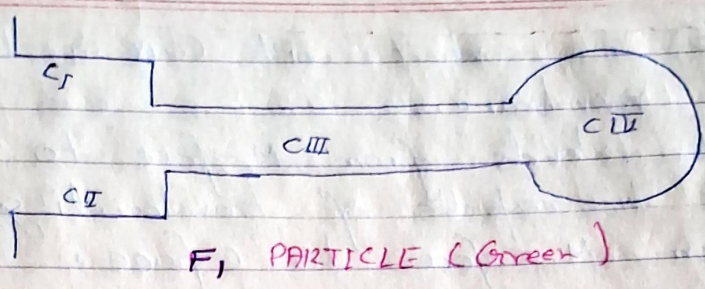 CI
CIV
CIII
CII
F, PARTICLE (Green)